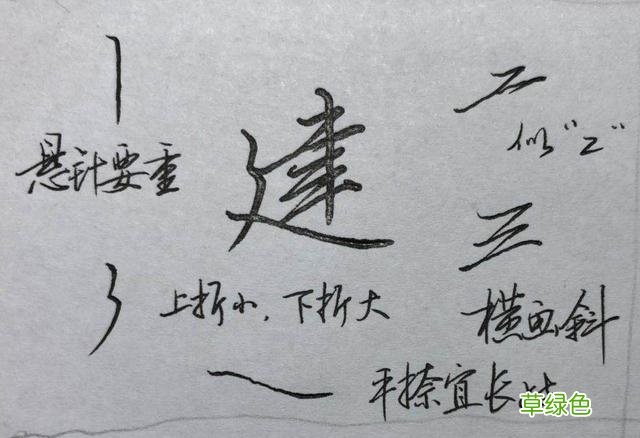 建
悬针要重
似“Z”
上折小，下折大
横画斜
平捺宜长
草绿色